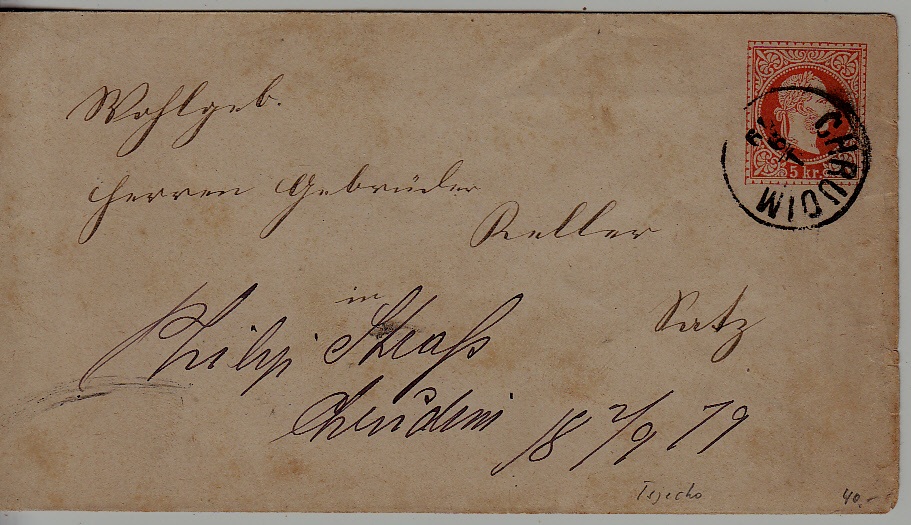 Wohlgeb.
Herren Gebrüder
Keller
in Saatz
Philipp Strass
Chrudim 18 2/9 79
5 kr.
CHRUDIM
40.-